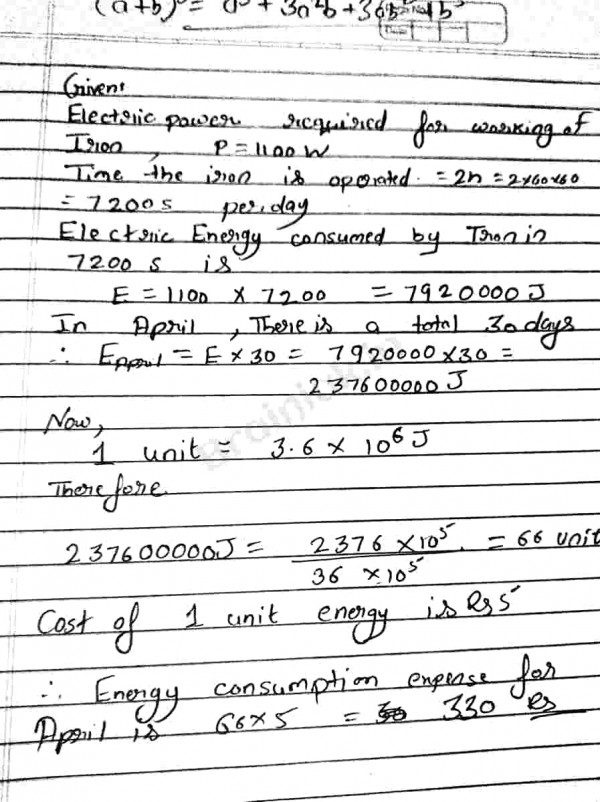 (a+b)³ = a³ + 3a²b + 3ab² + b³
Given:
Electric power required for working of
Iron, P = 1100 W
Time the iron is operated. = 2h = 2×60×60
= 7200 s per day
Electric Energy consumed by Iron in
7200 s is
E = 1100 × 7200 = 7920000 J
In April, There is a total 30 days
∴ E_April = E × 30 = 7920000 × 30 =
237600000 J
Now,
1 unit = 3.6 × 10⁶ J
Therefore
237600000 J = 2376 × 10⁵ / 36 × 10⁵ = 66 unit
Cost of 1 unit energy is Rs 5
∴ Energy consumption expense for
April is 66 × 5 = 330 Rs